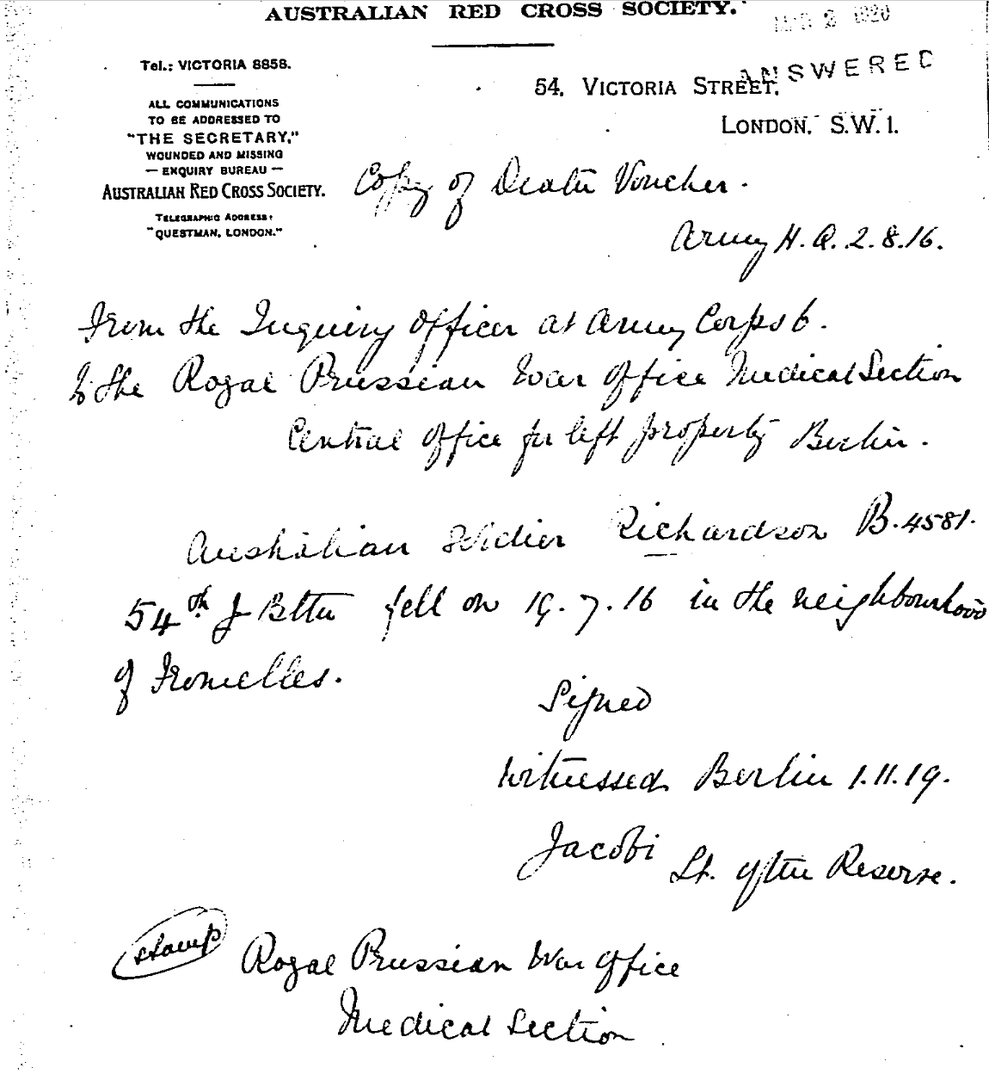 AUSTRALIAN RED CROSS SOCIETY.
MAR 2 1920
ANSWERED
Tel.: VICTORIA 8858.
ALL COMMUNICATIONS
TO BE ADDRESSED TO
"THE SECRETARY,"
WOUNDED AND MISSING
— ENQUIRY BUREAU —
AUSTRALIAN RED CROSS SOCIETY.
TELEGRAPHIC ADDRESS:
"QUESTMAN, LONDON."
54, VICTORIA STREET,
LONDON, S.W.1.
Copy of Death Voucher.
Army H.Q. 2.8.16.
From the Inquiry Officer at Army Corps 6.
To the Royal Prussian War Office Medical Section
Central Office for left property Berlin.
Australian Soldier Richardson B. 4581.
54th J Bttn fell on 19.7.16 in the neighbourhood
of Fromelles.
Signed
Witnessed Berlin 1.11.19.
Jacobi Lt. of the Reserve.
stamp Royal Prussian War Office
Medical Section